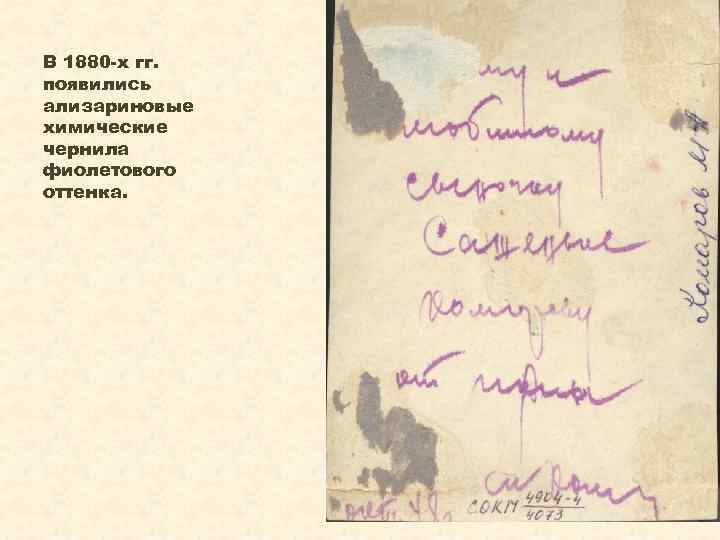 В 1880-х гг.
появились
ализариновые
химические
чернила
фиолетового
оттенка.
му и
любимому
сыночку
Сашеньке
Комарову
от
окт. 48 г
СОКМ 4904-4
4073
Комаров М А